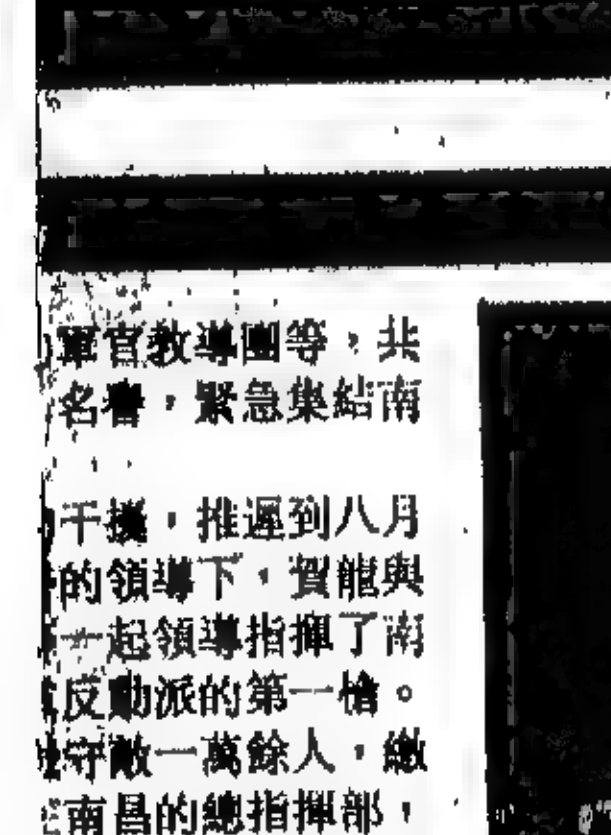 軍官教導團等，共
名譽，緊急集結南
干擾，推遲到八月
的領導下，賀龍與
一起領導指揮了南
反動派的第一槍。
守敵一萬餘人，繳
南昌的總指揮部，